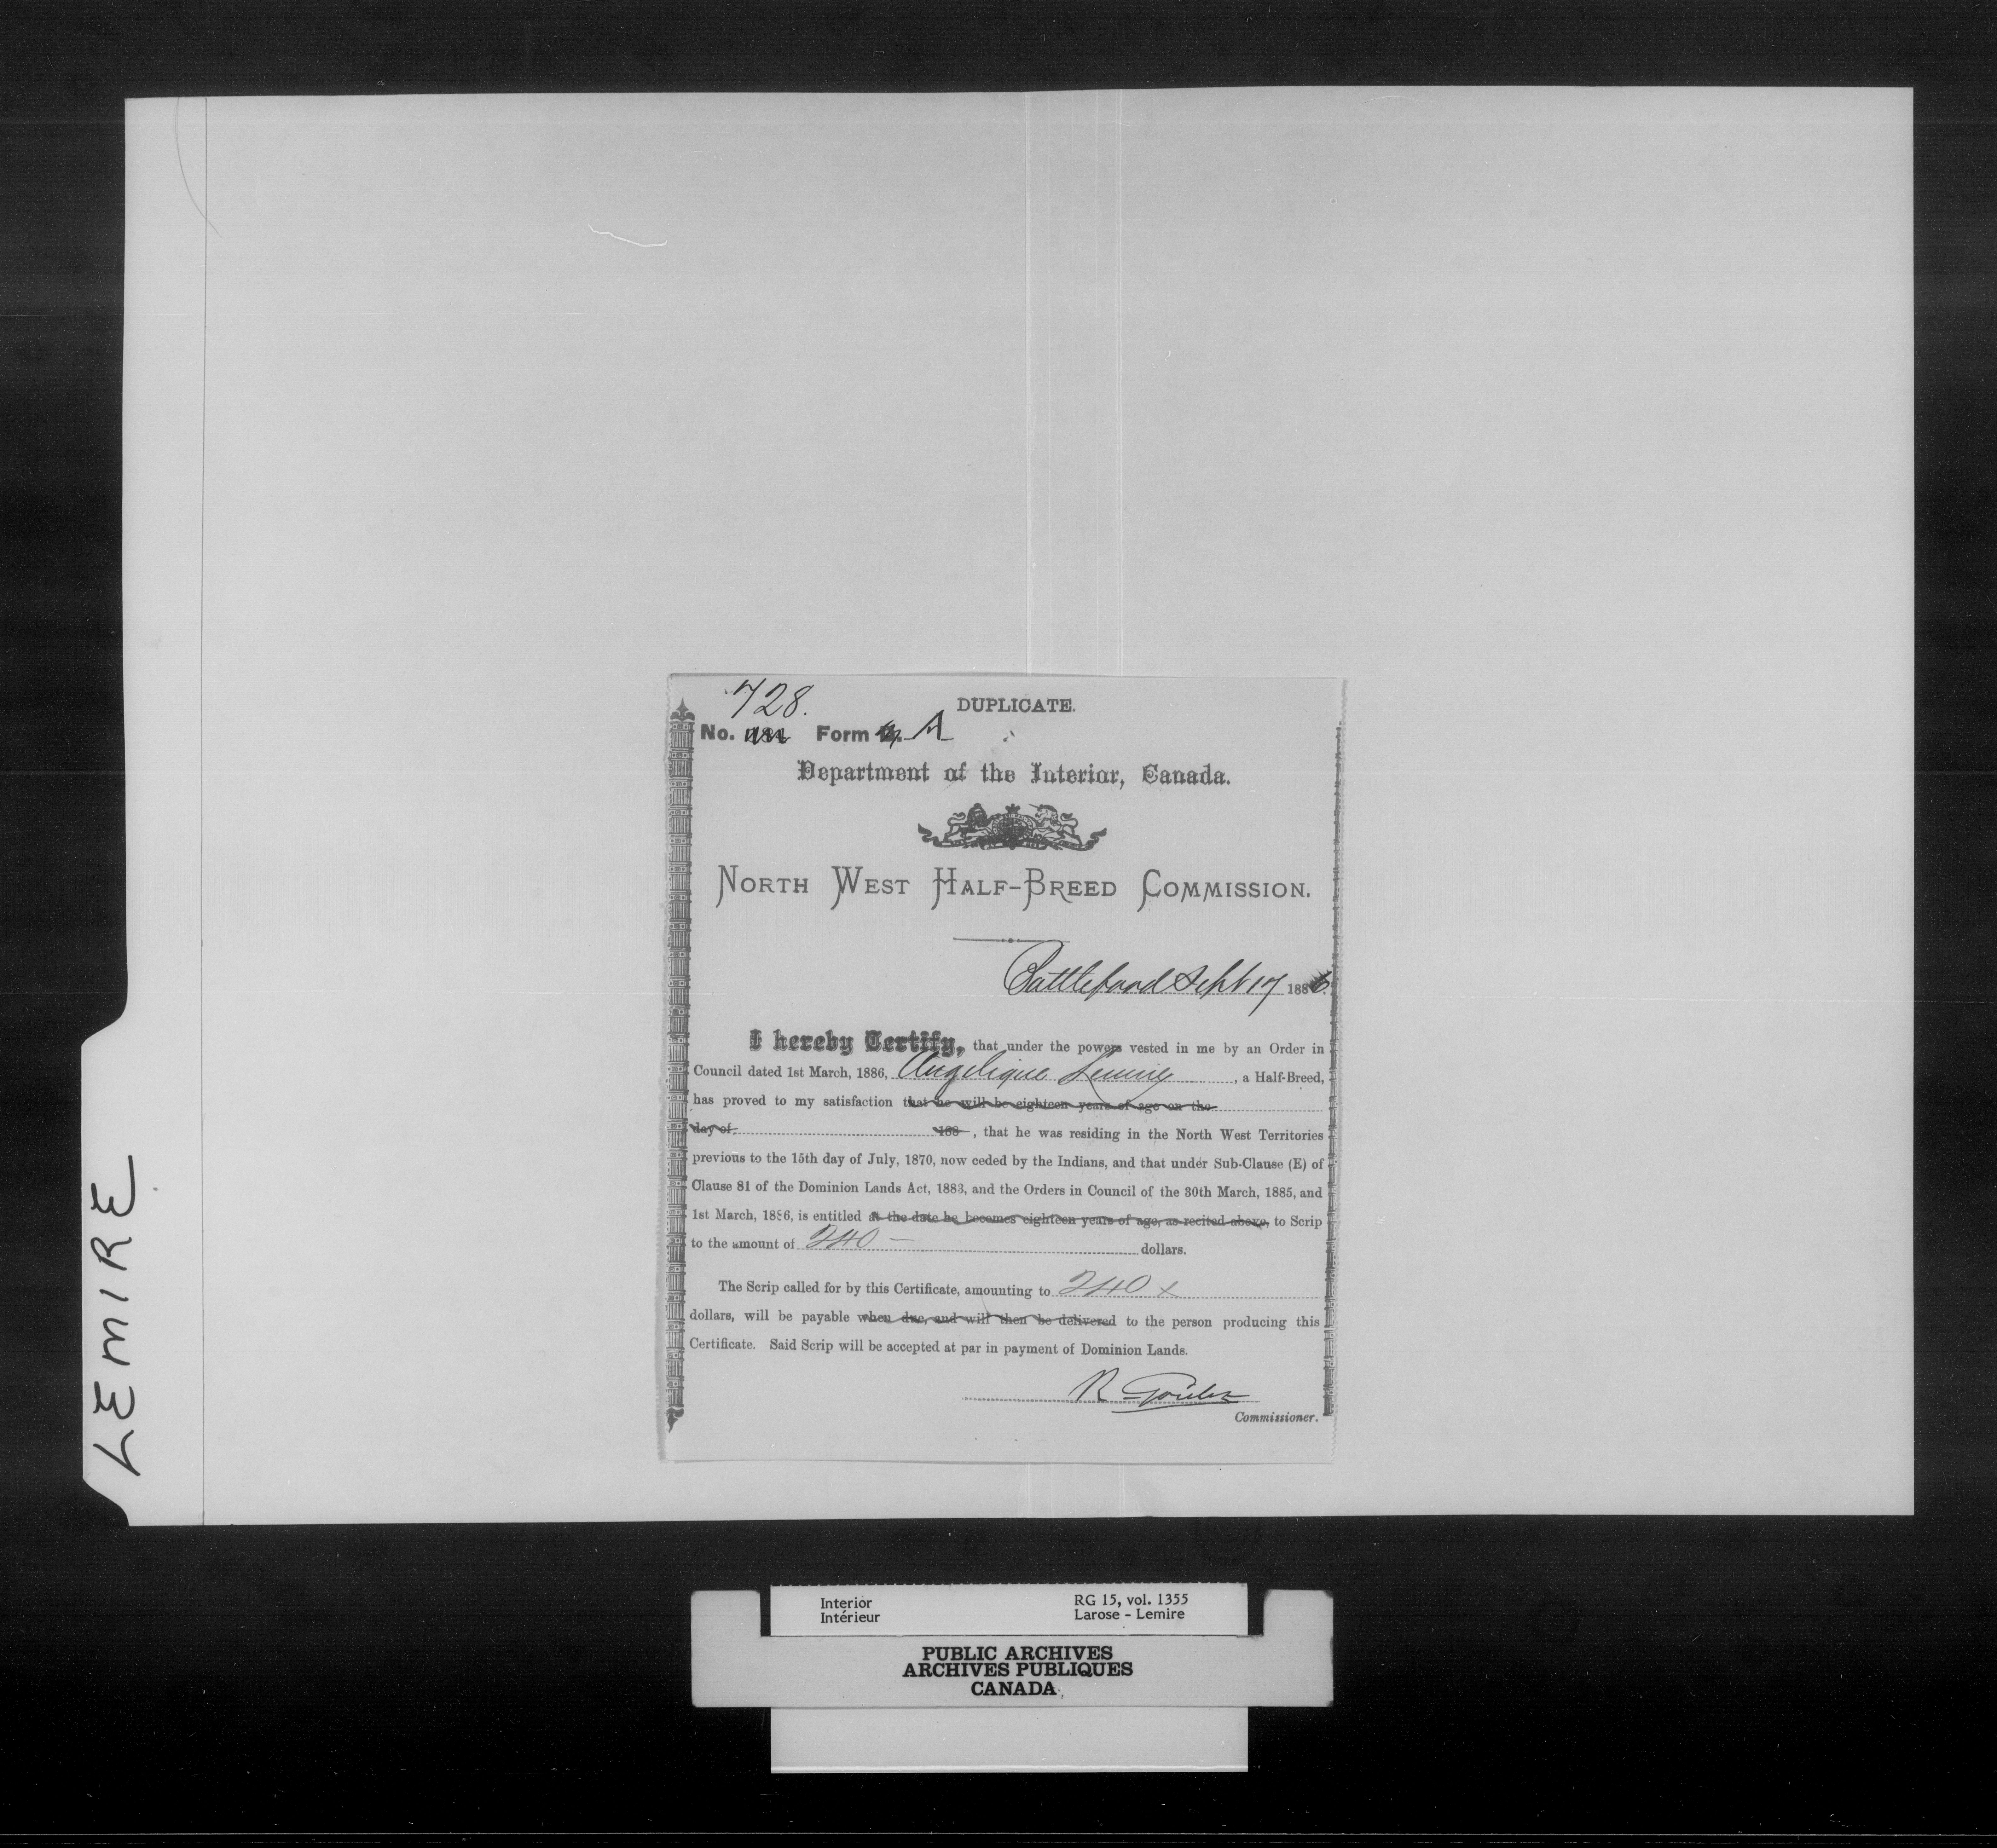 LEMIRE
728.
DUPLICATE.
No. Form A
Department of the Interior, Canada.
NORTH WEST HALF-BREED COMMISSION.
Battleford Sept 17 1886.
I hereby Certify, that under the powers vested in me by an Order in
Council dated 1st March, 1886, Angelique , a Half-Breed,
has proved to my satisfaction that he will be eighteen years of age on the
day of 188 , that he was residing in the North West Territories
previous to the 15th day of July, 1870, now ceded by the Indians, and that under Sub-Clause (E) of
Clause 81 of the Dominion Lands Act, 1883, and the Orders in Council of the 30th March, 1885, and
1st March, 1886, is entitled at the date he becomes eighteen years of age, as recited above, to Scrip
to the amount of 240 — dollars.
The Scrip called for by this Certificate, amounting to 240 x
dollars, will be payable when due, and will then be delivered to the person producing this
Certificate. Said Scrip will be accepted at par in payment of Dominion Lands.
R Goulet
Commissioner.
Interior RG 15, vol. 1355
Intérieur Larose - Lemire
PUBLIC ARCHIVES
ARCHIVES PUBLIQUES
CANADA